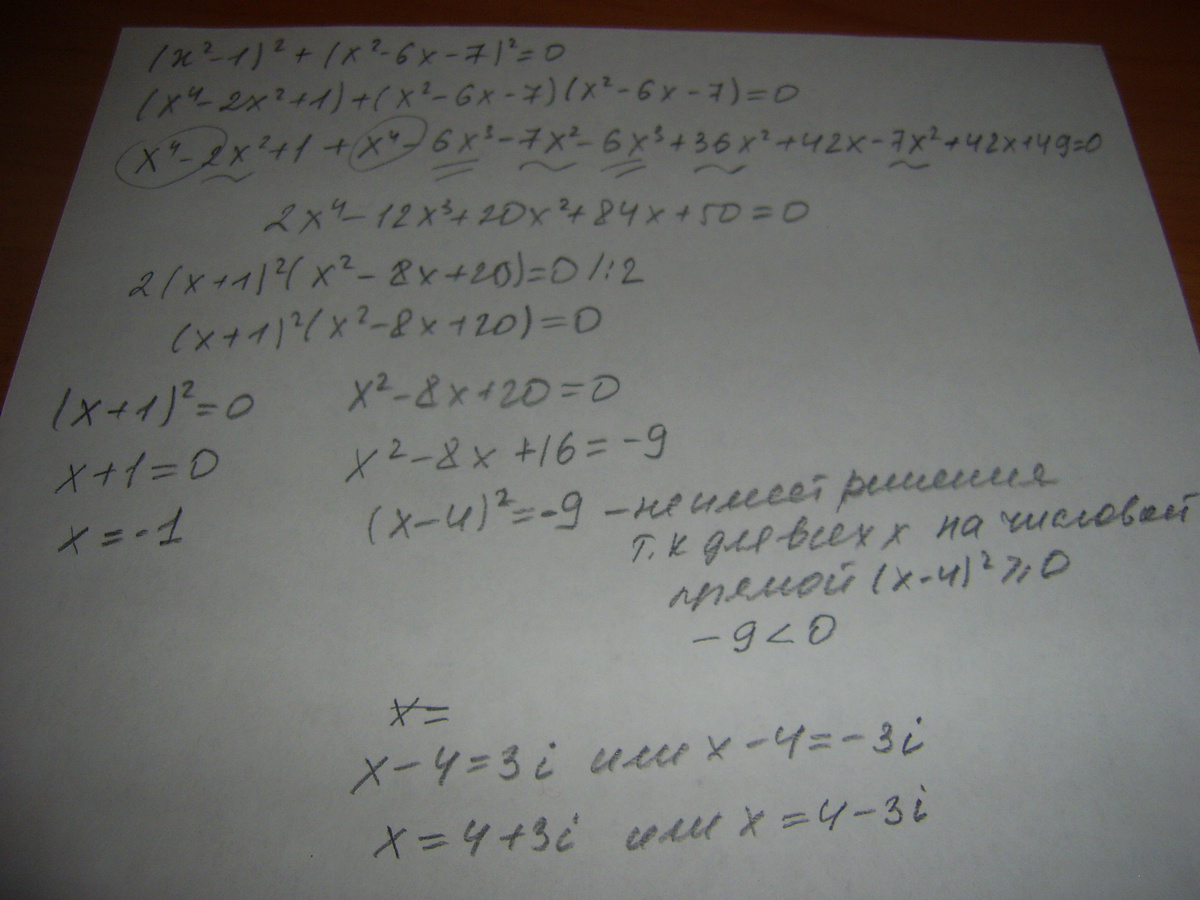 (x²-1)²+(x²-6x-7)²=0
(x⁴-2x²+1)+(x²-6x-7)(x²-6x-7)=0
x⁴-2x²+1+x⁴-6x³-7x²-6x³+36x²+42x-7x²+42x+49=0
2x⁴-12x³+20x²+84x+50=0
2(x+1)²(x²-8x+20)=0 /:2
(x+1)²(x²-8x+20)=0
(x+1)²=0 x²-8x+20=0
x+1=0 x²-8x+16=-9
x=-1 (x-4)²=-9 - не имеет решения
т.к для всех x на числовой
прямой (x-4)²≥0
-9<0
x=
x-4=3i или x-4=-3i
x=4+3i или x=4-3i